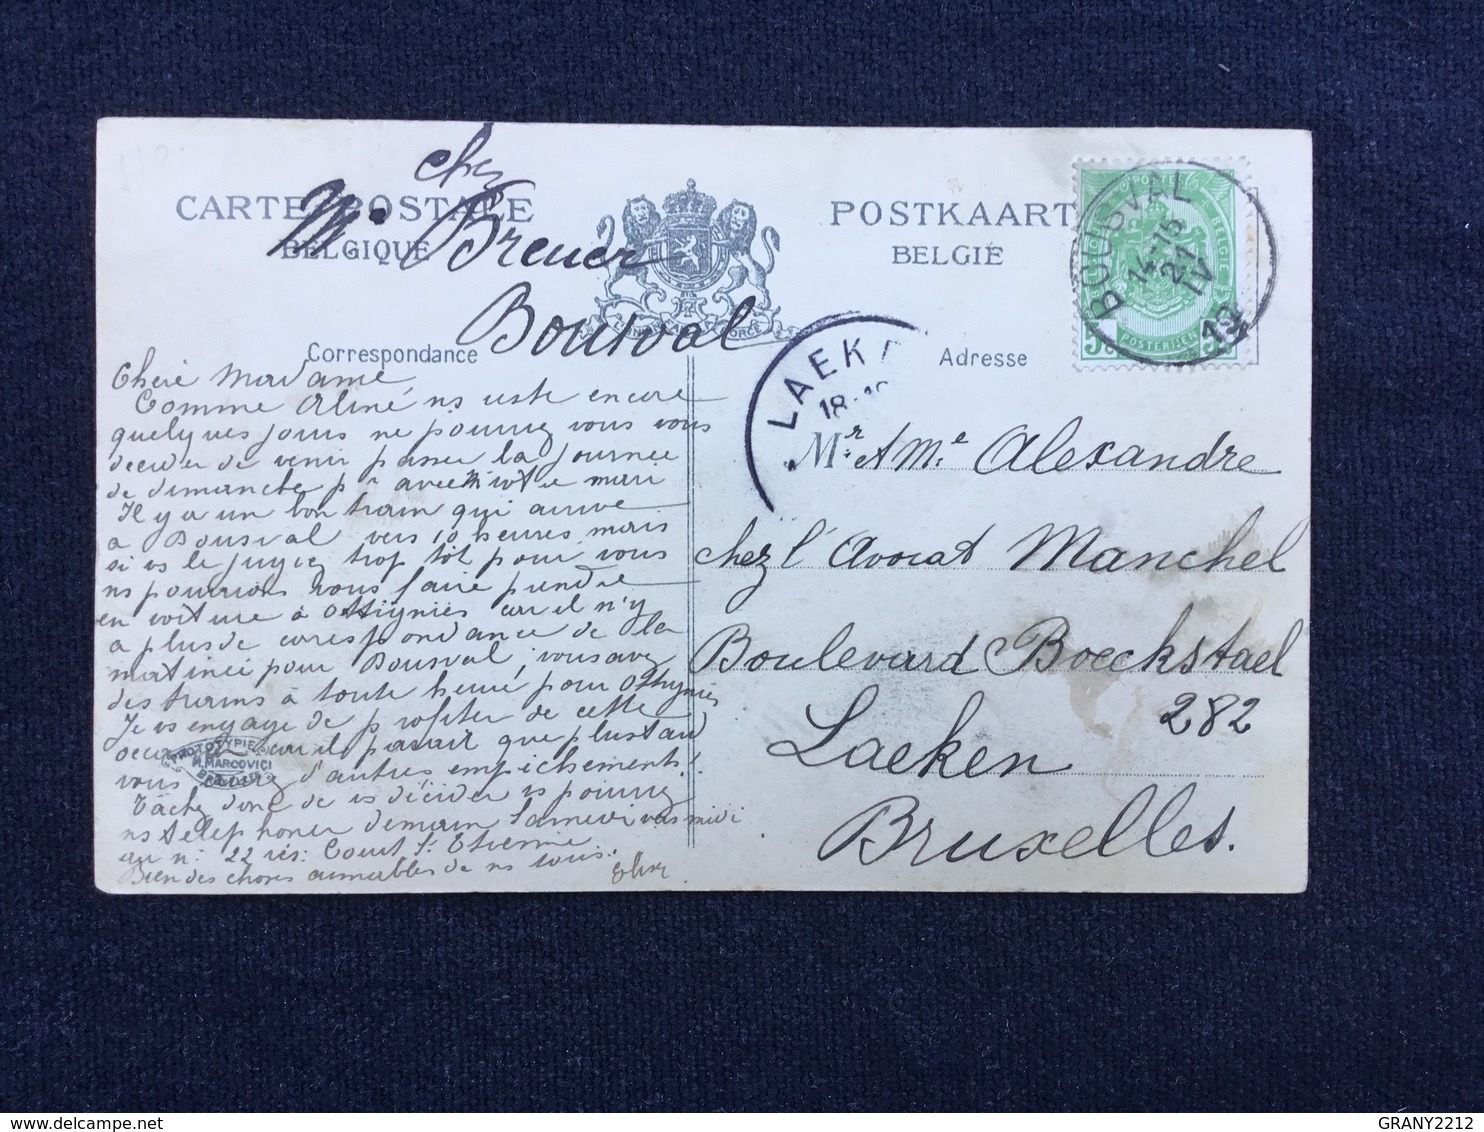 chez
CARTE POSTALE
POSTKAART
Mr Breuer
BELGIQUE
BELGIË
Bousval
Correspondance
Adresse
BOUSVAL
14-15
21
IV
BELGIE
POSTERIJEN
5 5
LAEKE
18-19
Chère Madame
Comme Aline ns reste encore
quelques jours ne pourriez vous vous
décider de venir passer la journée
de dimanche avec votre mari
Il y a un bon train qui arrive
à Bousval vers 10 heures mais
si vs le jugiez trop tôt pour vous
ns pourrions vous faire prendre
en voiture à Ottignies car il n'y
a plus de correspondance de la
matinée pour Bousval, vous avez
des trains à toute heure pour Ottignies
Je vs engage de profiter de cette
car il parait que plus tard
vous d'autres empêchements!
Tâchez donc de vs décider vs pourrez
ns téléphoner demain samedi vers midi
au n° 22 rés: Court St Etienne
Bien des choses aimables de ns tous.
PROTOTYPIE
M. MARCOVICI
Mr. & Me Alexandre
chez l'Avocat Manchel
Boulevard Boeckstael
282
Laeken
Bruxelles.
GRANY2212